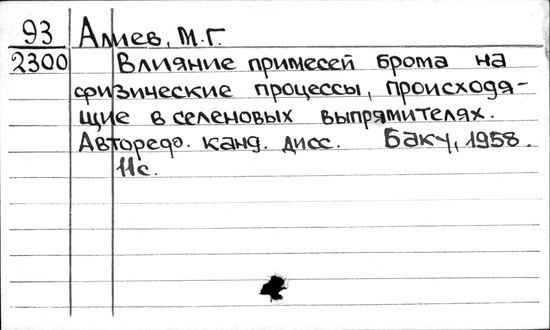 93 Алиев, М.Г.
2300 Влияние примесей брома на
физические процессы, происходя-
щие в селеновых выпрямителях.
Автореф. канд. дисс. Баку, 1958.
11с.